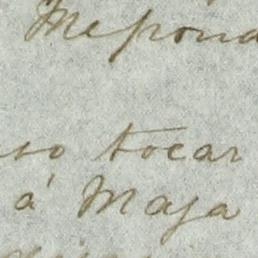 Mepond
so tocar
á Maja